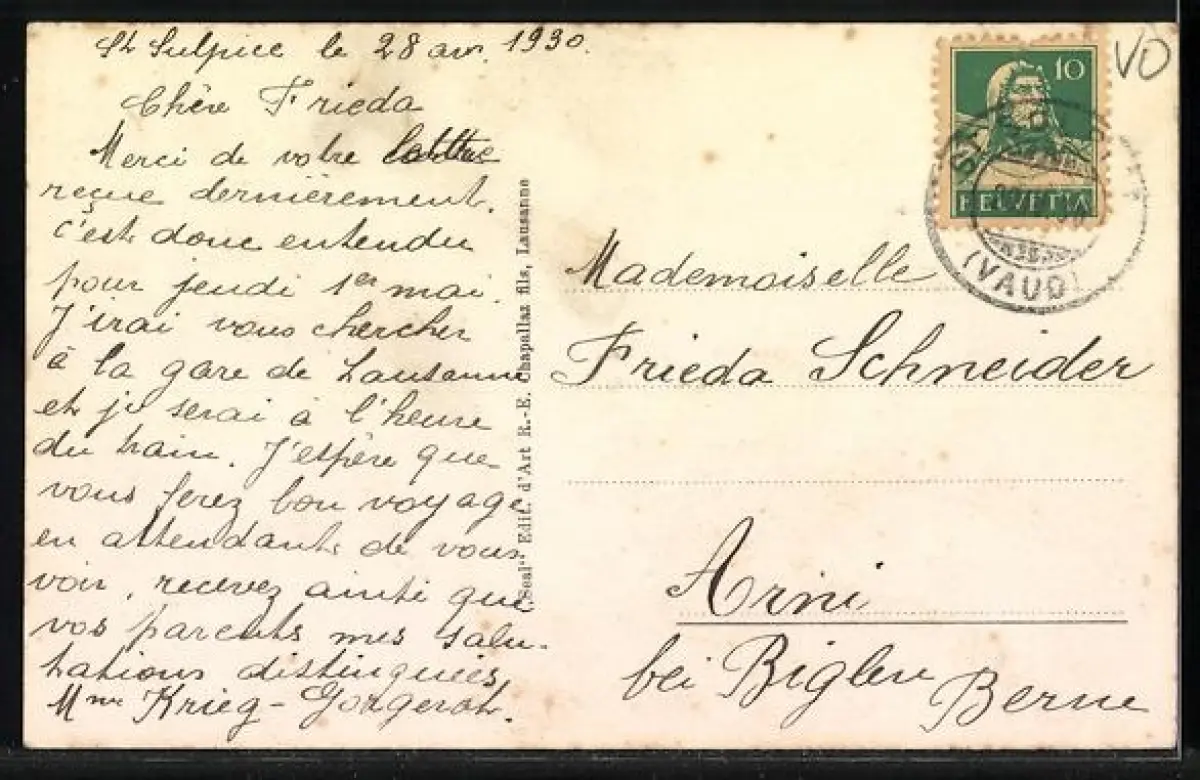 St Sulpice le 28 avr. 1930.
Chère Frieda
Merci de votre lettre
reçue dernièrement.
c'est donc entendu
pour jeudi 1er mai.
J'irai vous chercher
à la gare de Lausanne
et je serai à l'heure
du train. J'espère que
vous ferez bon voyage
en attendant de vous
voir, recevez ainsi que
vos parents mes salu-
tations distinguées
Mme Krieg-Gorgerat.
"Seal" Edit. d'Art R.-E. Chapallaz fils, Lausanne
VD
10
HELVETIA
(VAUD)
Mademoiselle
Frieda Schneider
Arni
bei Biglen
Berne